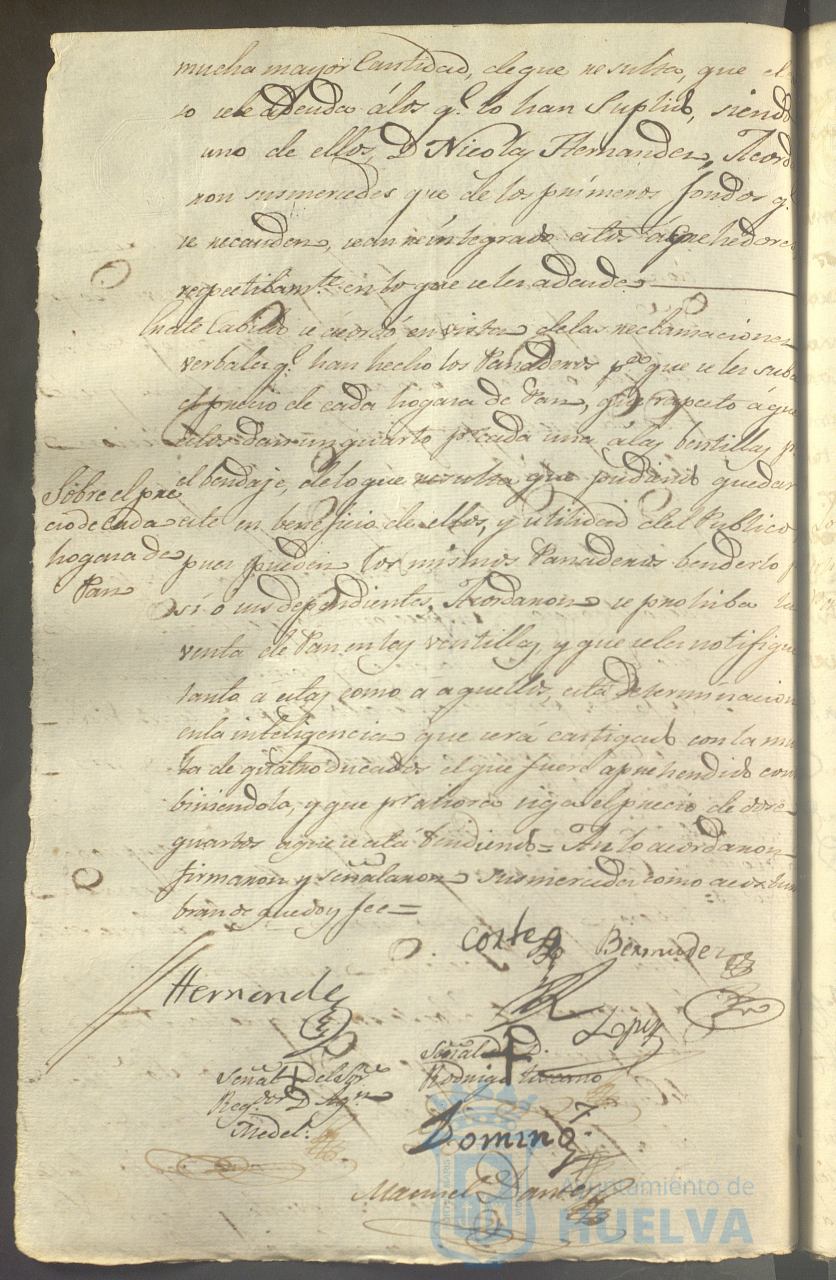 mucha mayor Cantidad, de que resulta, que el
se le adeuda á los q.e lo han Suplido, siendo
uno de ellos, D Nicolas Hernandez, Acorda
ron susmercedes que de los primeros fondos q.e
se recauden, sean reintegrados estos Acrehedores
respectibam.te en lo que se les adeuda
En este Cabildo se acordó en vista de las reclamaciones
verbales q.e han hecho los Panaderos p.a que se les suba
el precio de cada hogasa de Pan, que respecto á que
estos dan un quarto p.r cada una á las bentillas p.r
el bendaje, de lo que resulta que pudiendo quedar
Sobre el pre
cio de cada
hogasa de
Pan
este en beneficio de ellos, y utilidad del Publico
pues pueden los mismos Panaderos benderlo p
sí ó sus dependientes, Acordaron se prohiba la
venta de Pan en las ventillas, y que se les notifique
tanto á estas como a aquellos, esta determinacion
en la inteligencia que será castigado con la mul
ta de quatro ducados el que fuere aprehendido con
biniendola, y que p.r ahora siga el precio de dose
quartos a que se está bendiendo = Así lo acordaron
firmaron y señalaron susmercedes como acostum
bran de que doy fee =
Cortes Bermudez
Hernandez
Lopez
Señal del S.r
Reg.dor D Ag.n
Medel.
Señal de D.
Rodrigo
Domingz
Manuel
Ayuntamiento de
HUELVA